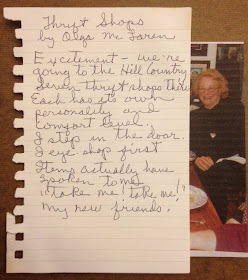 Thrift Shops
by Olga Mc Laren
Excitement - we're
going to the Hill Country
Seven thrift shops there
Each has its own
personality and
comfort level.
I step in the door.
I eye-shop first
Items actually have
spoken to me
"take me! take me!"
My new friends.